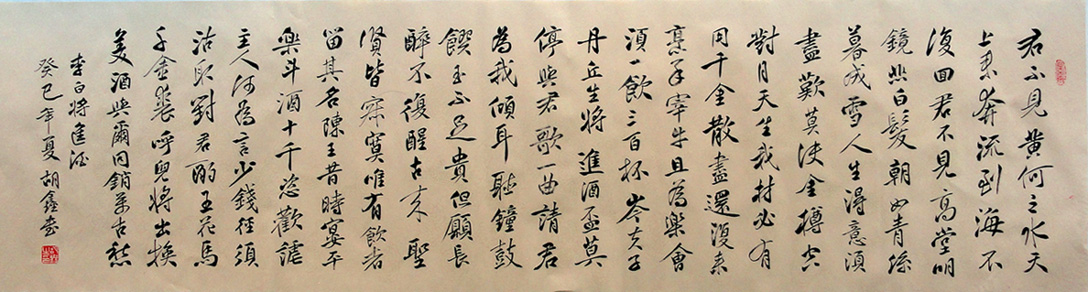 君不見黃河之水天
上來奔流到海不
復回君不見高堂明
鏡悲白髮朝如青絲
暮成雪人生得意須
盡歡莫使金樽空
對月天生我材必有
用千金散盡還復來
烹羊宰牛且為樂會
須一飲三百杯岑夫子
丹丘生將進酒盃莫
停與君歌一曲請君
為我傾耳聽鐘鼓
饌玉不足貴但願長
醉不復醒古來聖
賢皆寂寞唯有飲者
留其名陳王昔時宴平
樂斗酒十千恣歡謔
主人何為言少錢徑須
沽取對君酌五花馬
千金裘呼兒將出換
美酒與爾同銷萬古愁
李白將進酒
癸巳年夏胡鑫書